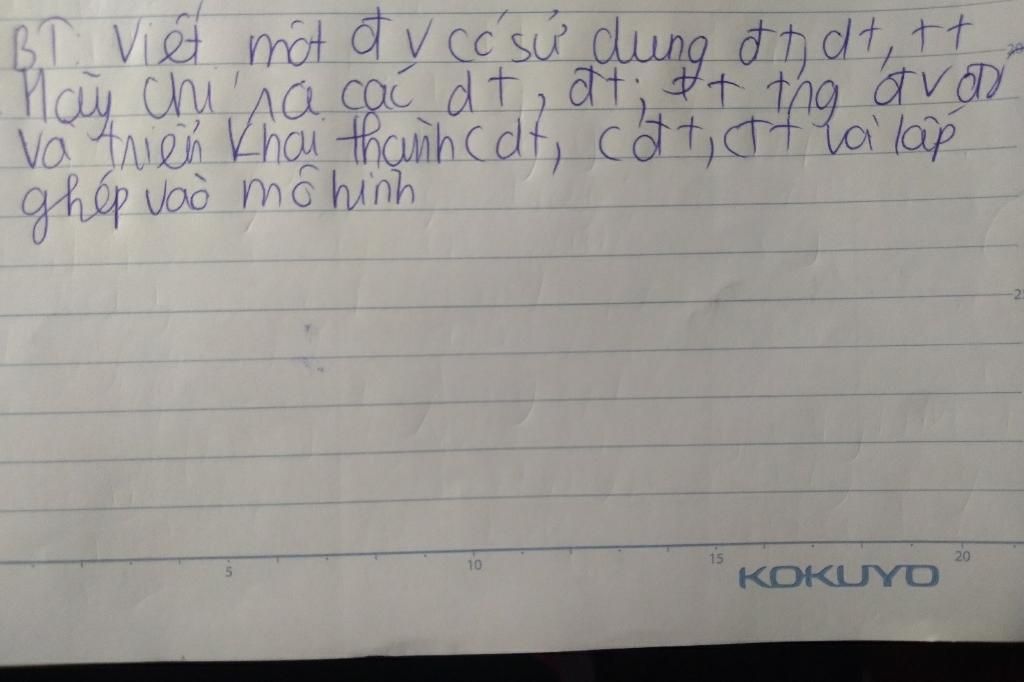 BT. Viết một đ v có sử dung đt, dt, tt
Hãy chỉ ra các dt, đt, tt tng đv đó
và triển khai thành cdt, cđt, ctt rồi lắp
ghép vào mô hình
5 10 15 20
KOKUYO